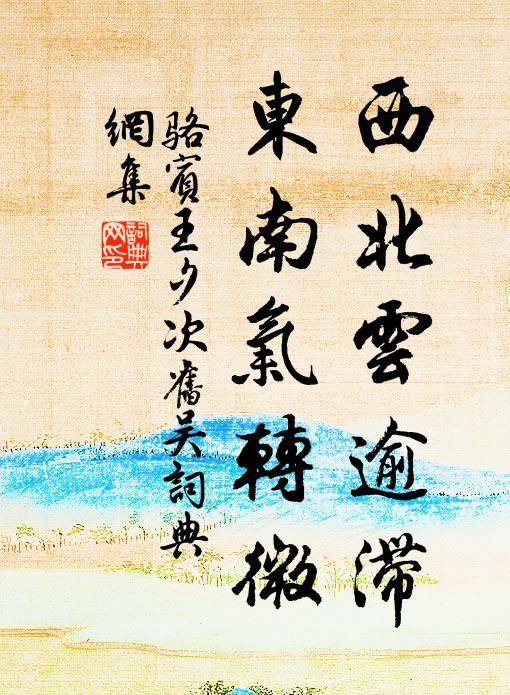 西北雲逾滯
東南氣轉微
駱賓王夕次舊吳詞典
網集
詞典
网印